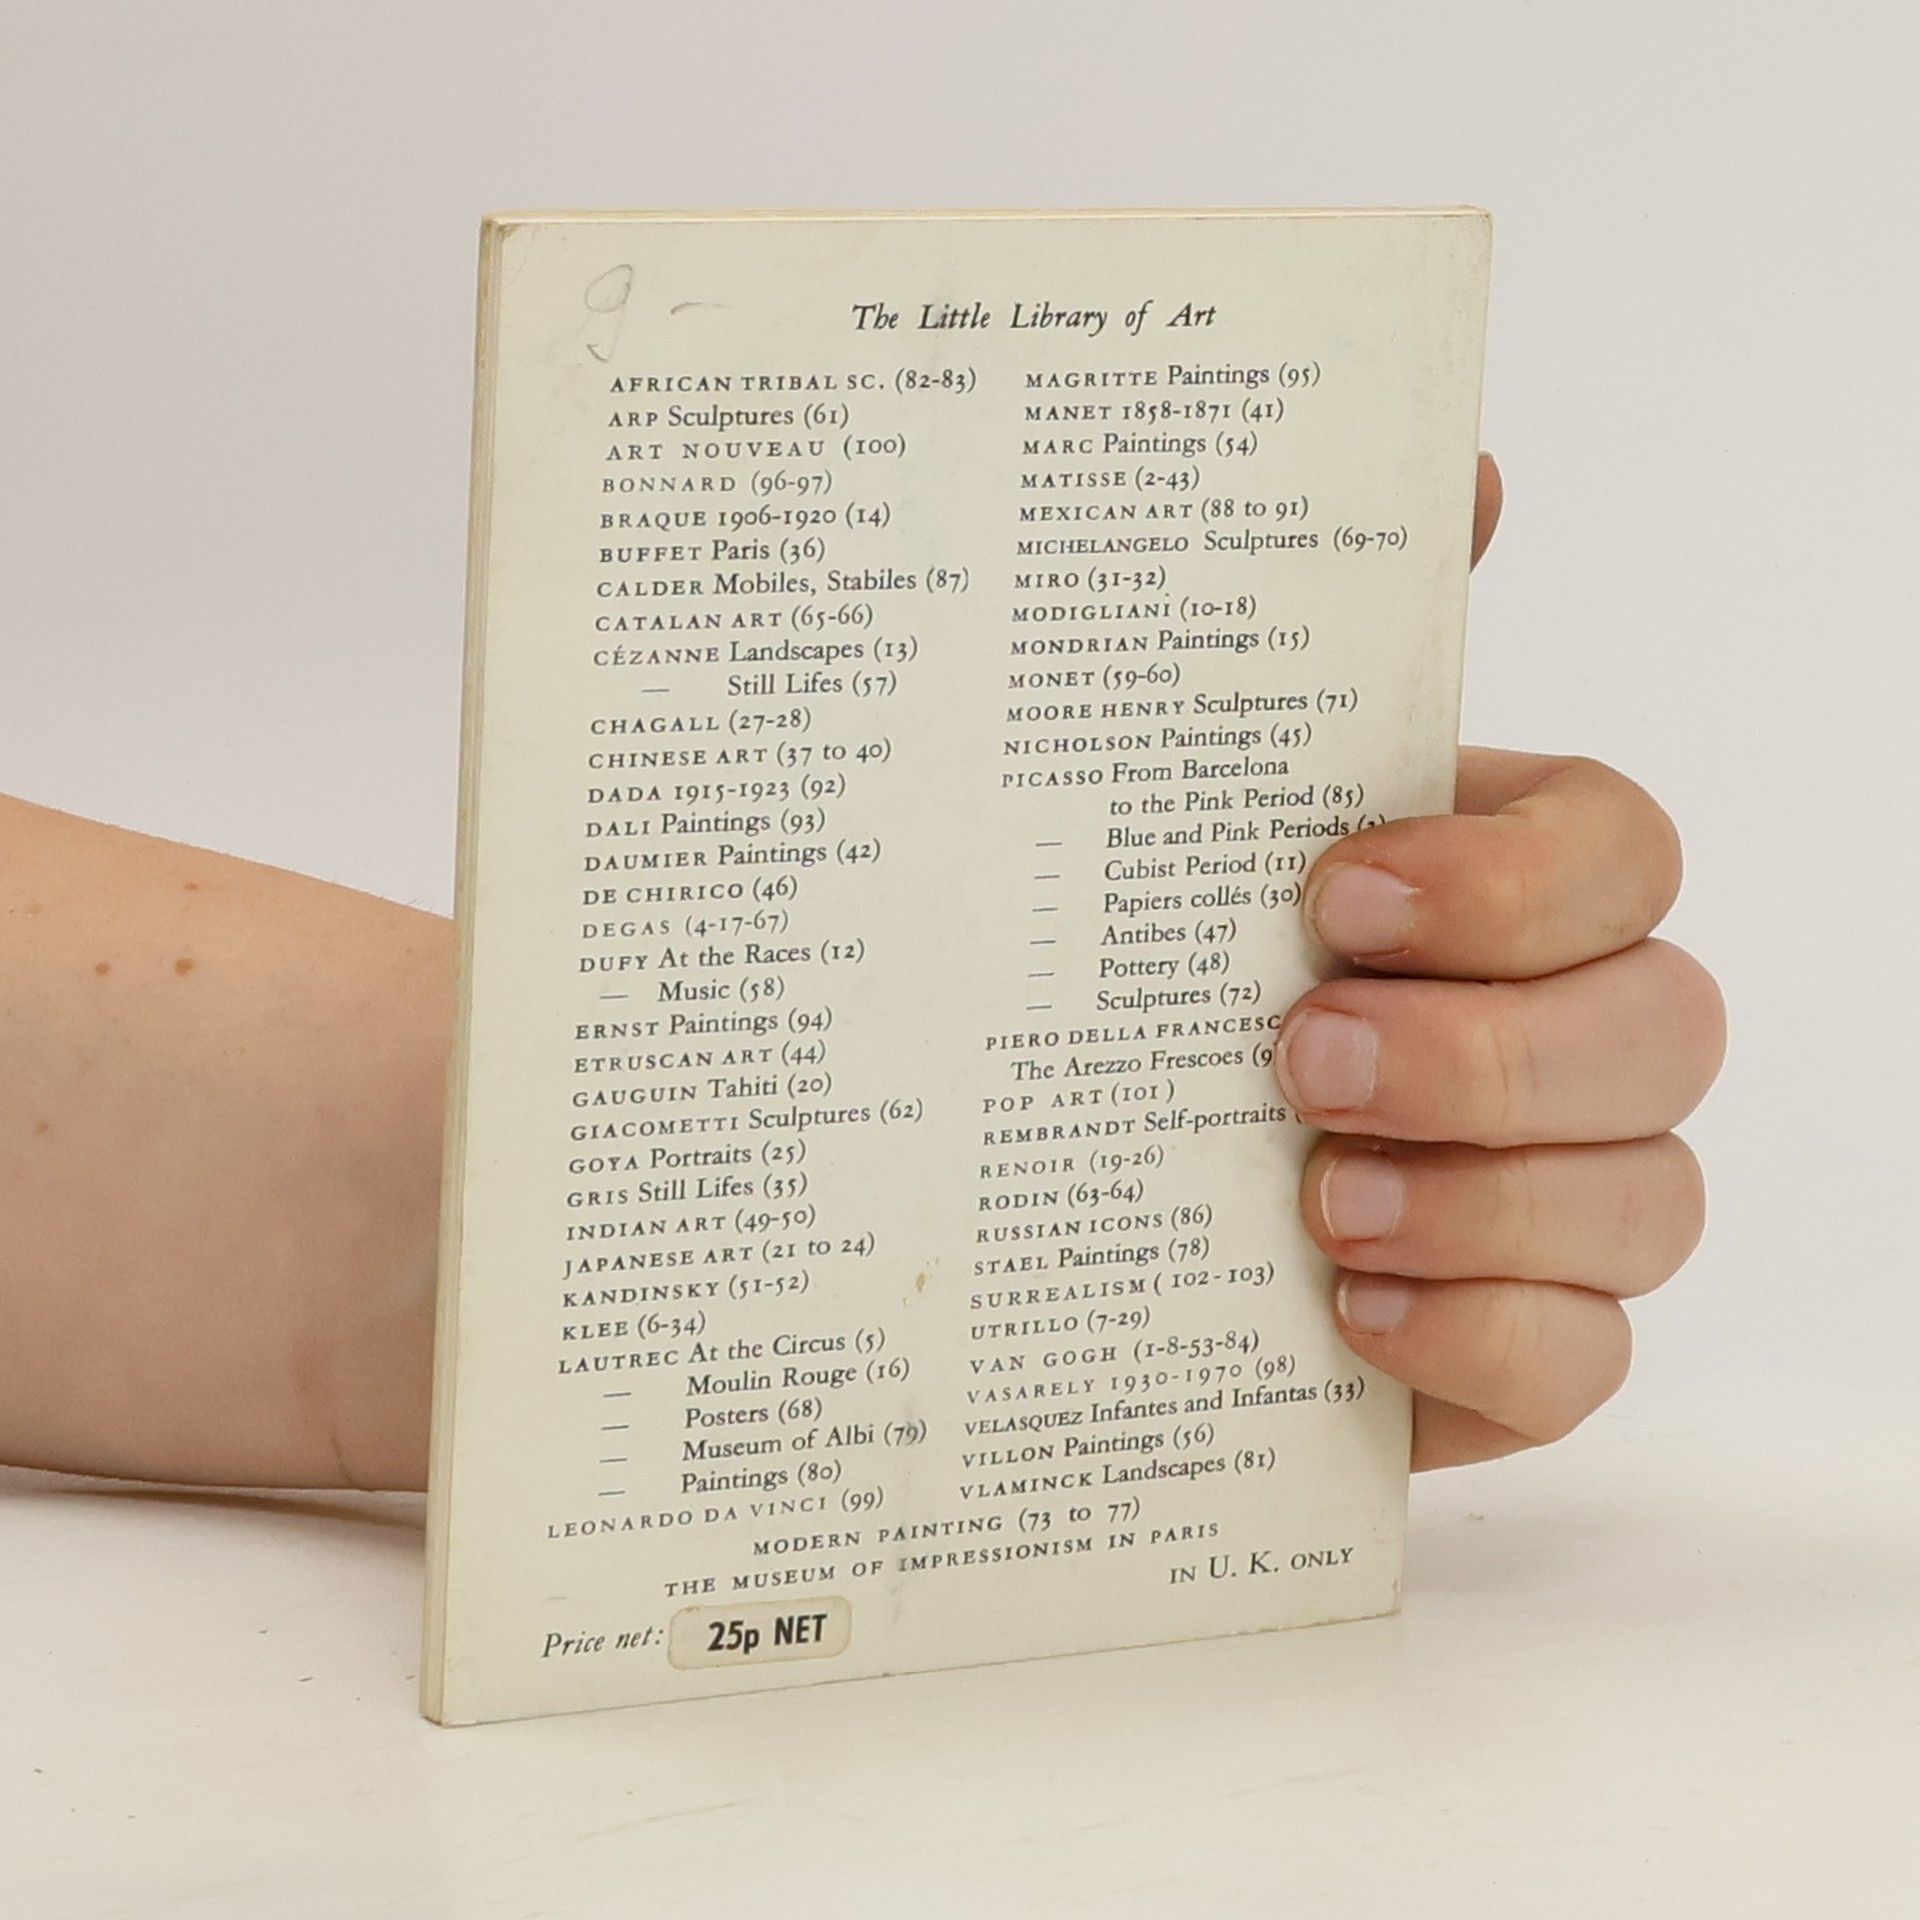 9 –
The Little Library of Art
AFRICAN TRIBAL SC. (82-83)
ARP Sculptures (61)
ART NOUVEAU (100)
BONNARD (96-97)
BRAQUE 1906-1920 (14)
BUFFET Paris (36)
CALDER Mobiles, Stabiles (87)
CATALAN ART (65-66)
CÉZANNE Landscapes (13)
— Still Lifes (57)
CHAGALL (27-28)
CHINESE ART (37 to 40)
DADA 1915-1923 (92)
DALI Paintings (93)
DAUMIER Paintings (42)
DE CHIRICO (46)
DEGAS (4-17-67)
DUFY At the Races (12)
— Music (58)
ERNST Paintings (94)
ETRUSCAN ART (44)
GAUGUIN Tahiti (20)
GIACOMETTI Sculptures (62)
GOYA Portraits (25)
GRIS Still Lifes (35)
INDIAN ART (49-50)
JAPANESE ART (21 to 24)
KANDINSKY (51-52)
KLEE (6-34)
LAUTREC At the Circus (5)
— Moulin Rouge (16)
— Posters (68)
— Museum of Albi (79)
— Paintings (80)
LEONARDO DA VINCI (99)
MAGRITTE Paintings (95)
MANET 1858-1871 (41)
MARC Paintings (54)
MATISSE (2-43)
MEXICAN ART (88 to 91)
MICHELANGELO Sculptures (69-70)
MIRO (31-32)
MODIGLIANI (10-18)
MONDRIAN Paintings (15)
MONET (59-60)
MOORE HENRY Sculptures (71)
NICHOLSON Paintings (45)
PICASSO From Barcelona
to the Pink Period (85)
— Blue and Pink Periods
— Cubist Period (11)
— Papiers collés (30)
— Antibes (47)
— Pottery (48)
— Sculptures (72)
PIERO DELLA FRANCESC
The Arezzo Frescoes (9
POP ART (101)
REMBRANDT Self-portraits
RENOIR (19-26)
RODIN (63-64)
RUSSIAN ICONS (86)
STAEL Paintings (78)
SURREALISM (102-103)
UTRILLO (7-29)
VAN GOGH (1-8-53-84)
VASARELY 1930-1970 (98)
VELASQUEZ Infantes and Infantas (33)
VILLON Paintings (56)
VLAMINCK Landscapes (81)
MODERN PAINTING (73 to 77)
THE MUSEUM OF IMPRESSIONISM IN PARIS
IN U. K. ONLY
Price net: 25p NET